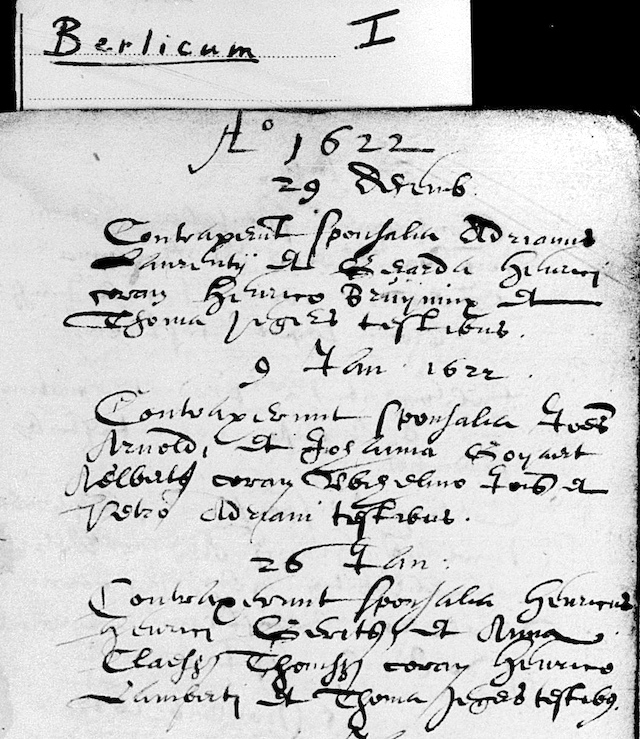 Berlicum I
A° 1622
29 Decemb.
Contraxerūt sponsalia Adrianus
Laurentÿ et Gerarda Henrici
coram Henrico Bruÿninx et
Thoma Jegers testibus.
9 Jan 1622.
Contraxerunt sponsalia Joēs
Arnoldi et Johanna Goyart
coram Jois et
Petro Adriani testibus.
26 Jan:
Contraxerunt sponsalia Henricus
Henrici Gerits, et Anna
Claess Thomss coram Henrico
Lamberti et Thoma Jegers testibus,